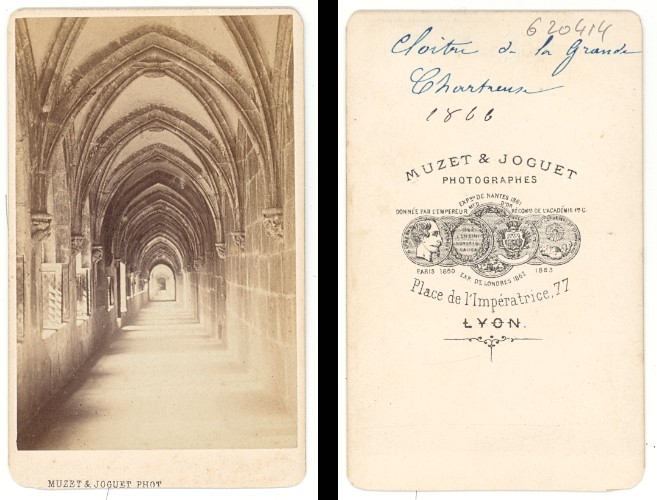 MUZET & JOGUET PHOT
620414
Cloitre de la Grande
Chartreuse
1866
MUZET & JOGUET
PHOTOGRAPHES
EXPon DE NANTES 1861
DONNÉE PAR L'EMPEREUR MED. D'OR RÉCOMP. DE L'ACADÉMIE Ile C.
PARIS 1860 EXP. DE LONDRES 1862 1863
Place de l'Impératrice, 77
LYON.